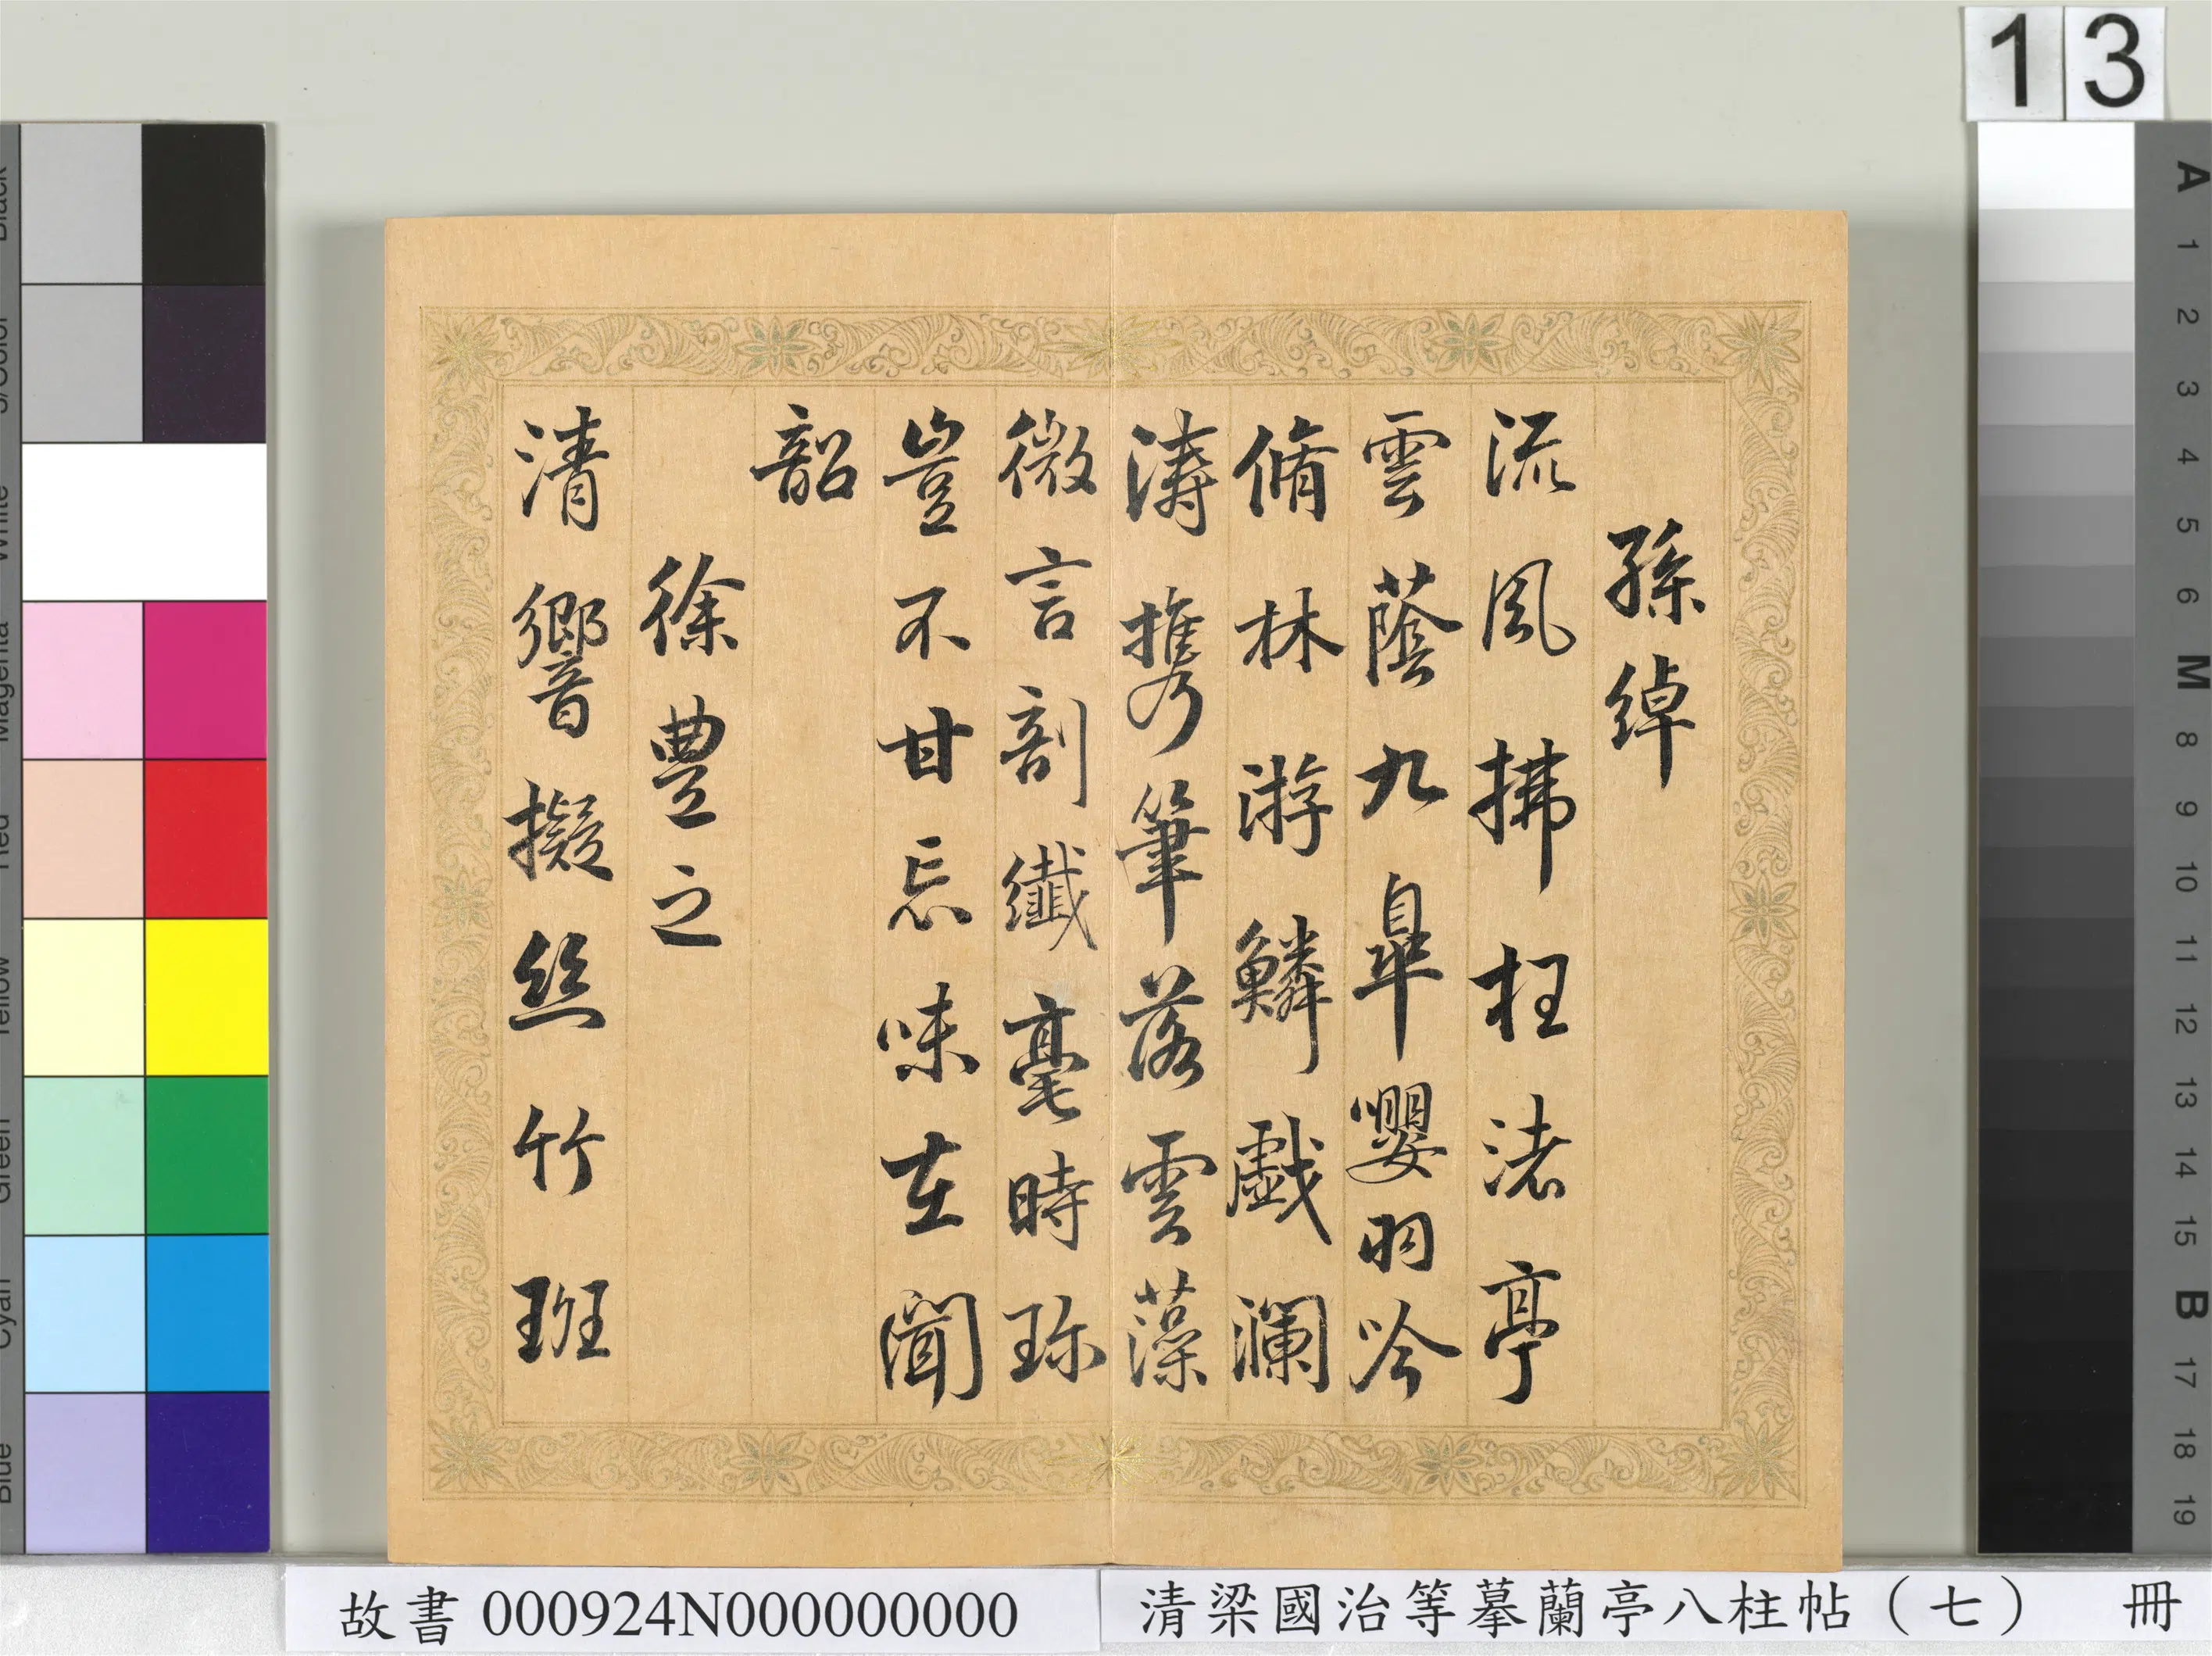 13
孫綽
流風拂枉渚亭
雲蔭九皐嚶羽吟
脩林游鱗戲瀾
濤携筆落雲藻
微言剖纖毫時珎
豈不甘忘味在聞
韶
徐豊之
清響擬絲竹班
故書 000924N000000000
清梁國治等摹蘭亭八柱帖（七） 冊
Black
3/Color
White
Magenta
Red
Yellow
Green
Cyan
Blue
A
1
2
3
4
5
6
M
8
9
10
11
12
13
14
15
B
17
18
19